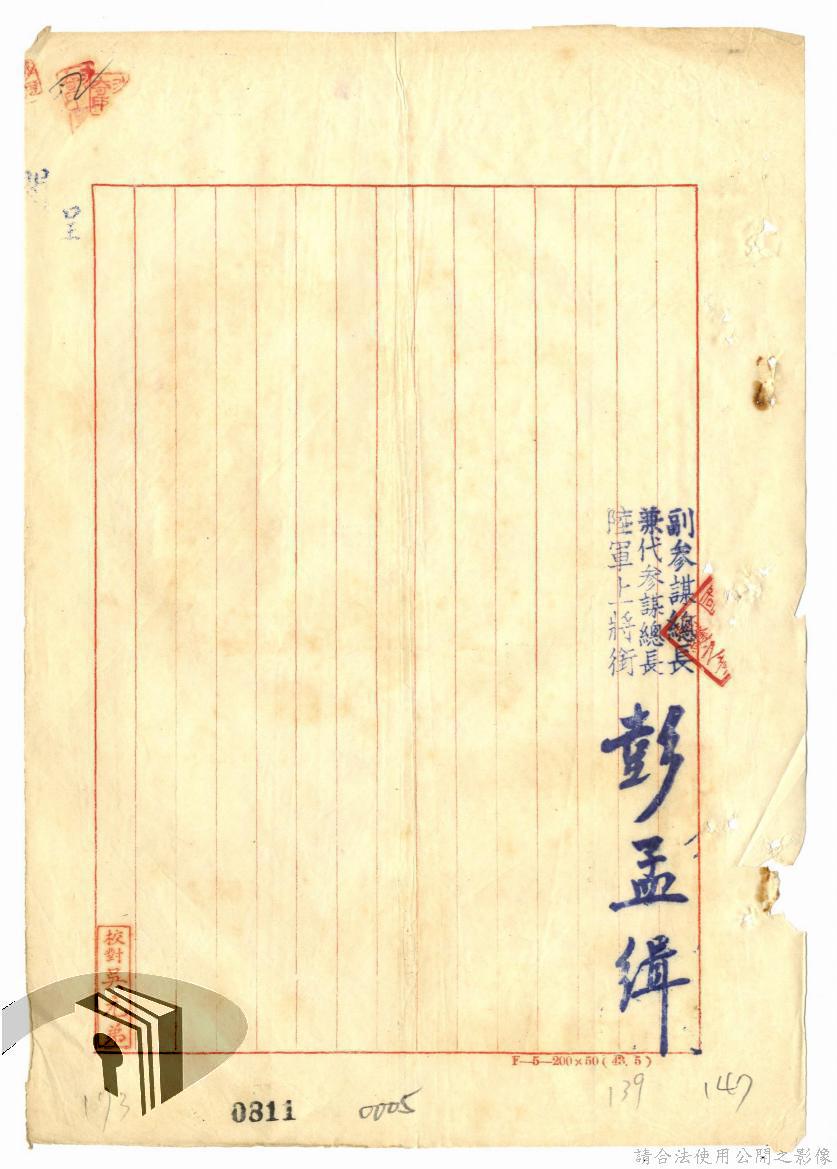 副參謀總長
兼代參謀總長
陸軍上將銜
彭孟緝
呈
校對吳
弟
F—5—200×50(43.5)
173
0811
0005
139
147
請合法使用公開之影像